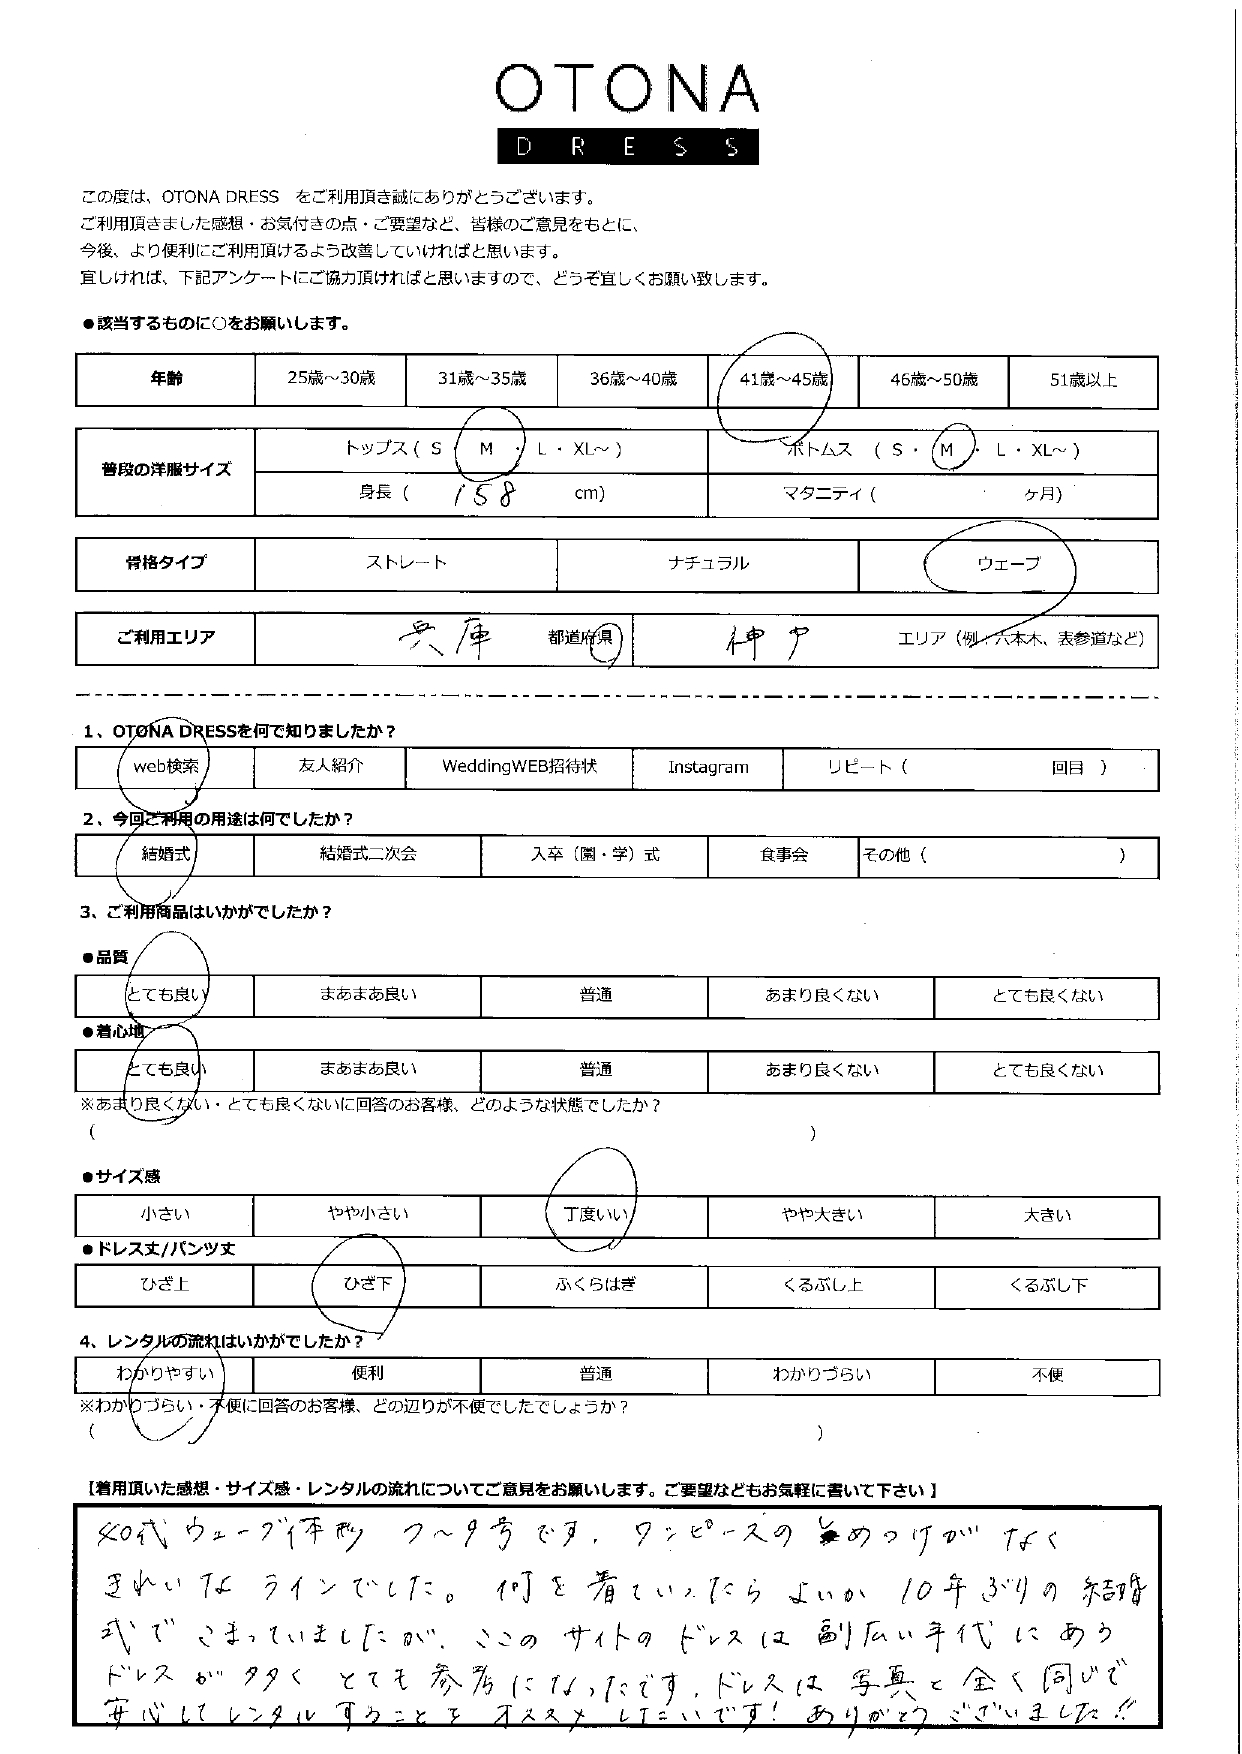 OTONA
DRESS
この度は、OTONA DRESS をご利用頂き誠にありがとうございます。
ご利用頂きました感想・お気付きの点・ご要望など、皆様のご意見をもとに、
今後、より便利にご利用頂けるよう改善していければと思います。
宜しければ、下記アンケートにご協力頂ければと思いますので、どうぞ宜しくお願い致します。
●該当するものに○をお願いします。
年齢 25歳～30歳 31歳～35歳 36歳～40歳 41歳～45歳 46歳～50歳 51歳以上
普段の洋服サイズ トップス ( S ・ M ・ L ・ XL～ ) ボトムス ( S ・ M ・ L ・ XL～ )
身長 ( 158 cm) マタニティ ( ヶ月)
骨格タイプ ストレート ナチュラル ウェーブ
ご利用エリア 兵庫 都道府県 神戸 エリア（例：六本木、表参道など）
1、OTONA DRESSを何で知りましたか？
web検索 友人紹介 WeddingWEB招待状 Instagram リピート ( 回目 )
2、今回ご利用の用途は何でしたか？
結婚式 結婚式二次会 入卒（園・学）式 食事会 その他 ( )
3、ご利用商品はいかがでしたか？
●品質
とても良い まあまあ良い 普通 あまり良くない とても良くない
●着心地
とても良い まあまあ良い 普通 あまり良くない とても良くない
※あまり良くない・とても良くないに回答のお客様、どのような状態でしたか？
( )
●サイズ感
小さい やや小さい 丁度いい やや大きい 大きい
●ドレス丈/パンツ丈
ひざ上 ひざ下 ふくらはぎ くるぶし上 くるぶし下
4、レンタルの流れはいかがでしたか？
わかりやすい 便利 普通 わかりづらい 不便
※わかりづらい・不便に回答のお客様、どの辺りが不便でしたでしょうか？
( )
【着用頂いた感想・サイズ感・レンタルの流れについてご意見をお願いします。ご要望などもお気軽に書いて下さい】
40代 ウェーブ体型 7～9号です. ワンピースの しめつけが なく
きれいな ラインでした。 何を着ていったらよいか 10年ぶりの 結婚
式で こまっていましたが、ここの サイトの ドレスは 副広い年代に あう
ドレスが 多く とても 参考になったです. ドレスは 写真と 全く同じで
安心して レンタル することを オススメ したいです! ありがとうございました!!